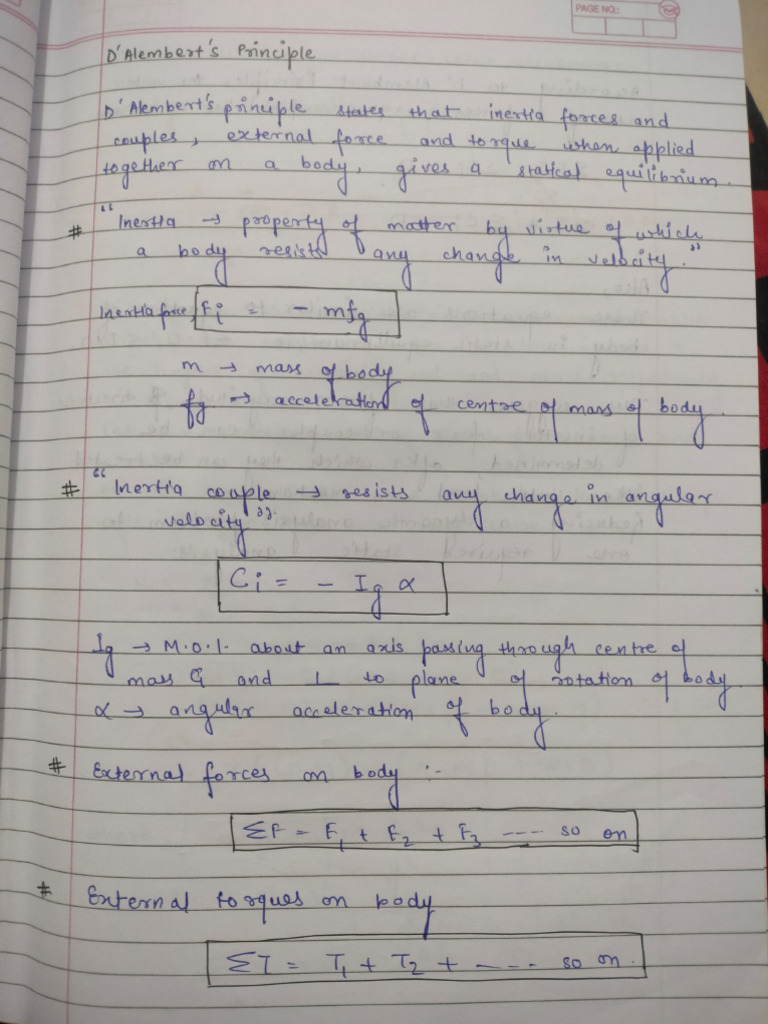 PAGE NO.:
D'Alembert's Principle
D'Alembert's principle states that inertia forces and
couples, external force and torque when applied
together on a body, gives a statical equilibrium.
# "Inertia → property of matter by virtue of which
a body resists any change in velocity."
Inertia force Fi = - mfg
m → mass of body
fg → acceleration of centre of mass of body.
# "Inertia couple → resists any change in angular
velocity".
Ci = - Ig α
Ig → M.O.I. about an axis passing through centre of
mass G and ⊥ to plane of rotation of body.
α → angular acceleration of body.
# External forces on body :-
ΣF = F1 + F2 + F3 ---- so on
# External torques on body
ΣT = T1 + T2 + ---- so on.